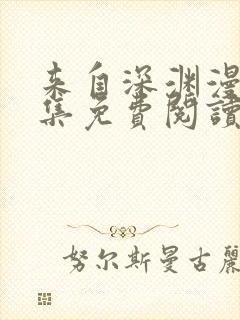 来自深渊漫
集免费閱讀
努尔斯曼古麗